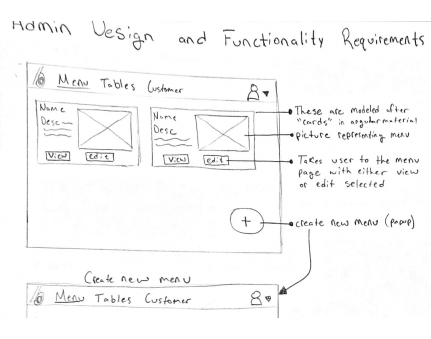 Admin Design and Functionality Requirements
Menu Tables Customer
Name
Desc
view edit
Name
Desc
view edit
These are modeled after
"cards" in angular material
picture representing menu
Takes user to the menu
page with either view
or edit selected
+
create new menu (popup)
Create new menu
Menu Tables Customer